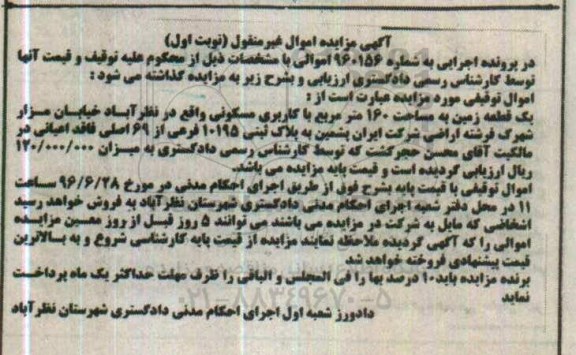 آگهی مزایده اموال غیرمنقول (نوبت اول)
در پرونده اجرایی به شماره ۹۶۰۱۵۶ اموالی با مشخصات ذیل از محکوم علیه توقیف و قیمت آنها
توسط کارشناس رسمی دادگستری ارزیابی و بشرح زیر به مزایده گذاشته می شود :
اموال توقیفی مورد مزایده عبارت است از :
یک قطعه زمین به مساحت ۱۶۰ متر مربع با کاربری مسکونی واقع در نظرآباد خیابان مزار
شهرک فرشته اراضی شرکت ایران پشمین به پلاک ثبتی ۱۰۱۹۵ فرعی از ۶۹ اصلی فاقد اعیانی در
مالکیت آقای محسن حجرکشت که توسط کارشناس رسمی دادگستری به میزان ۱۲۰/۰۰۰/۰۰۰
ریال ارزیابی گردیده است و قیمت پایه مزایده می باشد.
اموال توقیفی با قیمت پایه بشرح فوق از طریق اجرای احکام مدنی در مورخ ۹۶/۶/۲۸ ساعت
۱۱ در محل دفتر شعبه اجرای احکام مدنی دادگستری شهرستان نظرآباد به فروش خواهد رسید
اشخاصی که مایل به شرکت در مزایده می باشند می توانند ۵ روز قبل از روز معین مزایده
اموالی را که آگهی گردیده ملاحظه نمایند مزایده از قیمت پایه کارشناسی شروع و به بالاترین
قیمت پیشنهادی فروخته خواهد شد
برنده مزایده باید۱۰ درصد بها را فی المجلس و الباقی را ظرف مهلت حداکثر یک ماه پرداخت
نماید
دادورز شعبه اول اجرای احکام مدنی دادگستری شهرستان نظرآباد
۰۲۱-۸۸۳۴۹۶۷۰-۵